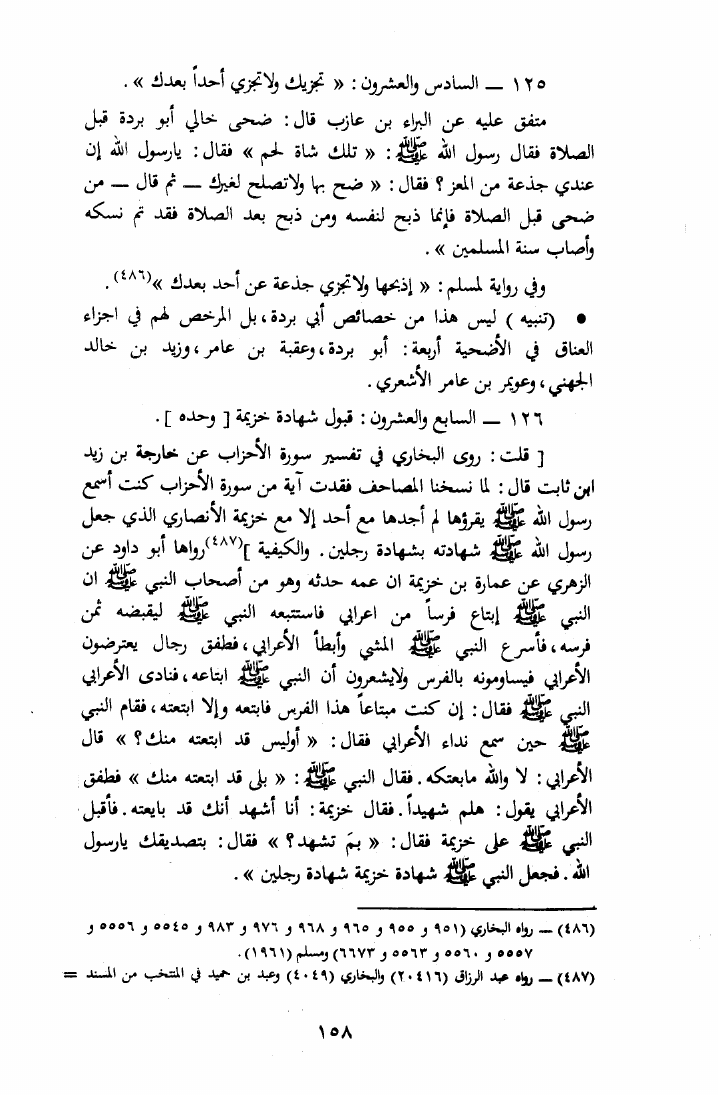 ١٢٥ — السادس والعشرون : « تجزيك ولاتجزي أحداً بعدك » .
متفق عليه عن البراء بن عازب قال : ضحى خالي أبو بردة قبل
الصلاة فقال رسول الله ﷺ : « تلك شاة لحم » فقال : يارسول الله إن
عندي جذعة من المعز ؟ فقال : « ضح بها ولاتصلح لغيرك — ثم قال — من
ضحى قبل الصلاة فإنما ذبح لنفسه ومن ذبح بعد الصلاة فقد تم نسكه
وأصاب سنة المسلمين » .
وفي رواية لمسلم : « إذبحها ولاتجزي جذعة عن أحد بعدك »(٤٨٦) .
● (تنبيه ) ليس هذا من خصائص أبي بردة ، بل المرخص لهم في اجزاء
العناق في الأضحية أربعة : أبو بردة ، وعقبة بن عامر ، وزيد بن خالد
الجهني ، وعويمر بن عامر الأشعري .
١٢٦ — السابع والعشرون : قبول شهادة خزيمة [ وحده ] .
[ قلت : روى البخاري في تفسير سورة الأحزاب عن خارجة بن زيد
ابن ثابت قال : لما نسخنا المصاحف فقدت آية من سورة الأحزاب كنت أسمع
رسول الله ﷺ يقرؤها لم أجدها مع أحد إلا مع خزيمة الأنصاري الذي جعل
رسول الله ﷺ شهادته بشهادة رجلين . والكيفية ](٤٨٧)رواها أبو داود عن
الزهري عن عمارة بن خزيمة ان عمه حدثه وهو من أصحاب النبي ﷺ ان
النبي ﷺ إبتاع فرساً من اعرابي فاستتبعه النبي ﷺ ليقبضه ثمن
فرسه ، فأسرع النبي ﷺ المشي وأبطأ الأعرابي ، فطفق رجال يعترضون
الأعرابي فيساومونه بالفرس ولايشعرون أن النبي ﷺ ابتاعه ، فنادى الأعرابي
النبي ﷺ فقال : إن كنت مبتاعاً هذا الفرس فابتعه وإلا ابتعته ، فقام النبي
ﷺ حين سمع نداء الأعرابي فقال : « أوليس قد ابتعته منك ؟ » قال
الأعرابي : لا والله مابعتكه . فقال النبي ﷺ : « بلى قد ابتعته منك » فطفق
الأعرابي يقول : هلم شهيداً . فقال خزيمة : أنا أشهد أنك قد بايعته . فأقبل
النبي ﷺ على خزيمة فقال : « بمَ تشهد ؟ » فقال : بتصديقك يارسول
الله . فجعل النبي ﷺ شهادة خزيمة شهادة رجلين » .
(٤٨٦) — رواه البخاري (٩٥١ و ٩٥٥ و ٩٦٥ و ٩٦٨ و ٩٧٦ و ٩٨٣ و ٥٥٤٥ و ٥٥٥٦ و
٥٥٥٧ و ٥٥٦٠ و ٥٥٦٣ و ٦٦٧٣) ومسلم (١٩٦١) .
(٤٨٧) — رواه عبد الرزاق (٢٠٤١٦) والبخاري (٤٠٤٩) وعبد بن حميد في المنتخب من المسند =
١٥٨